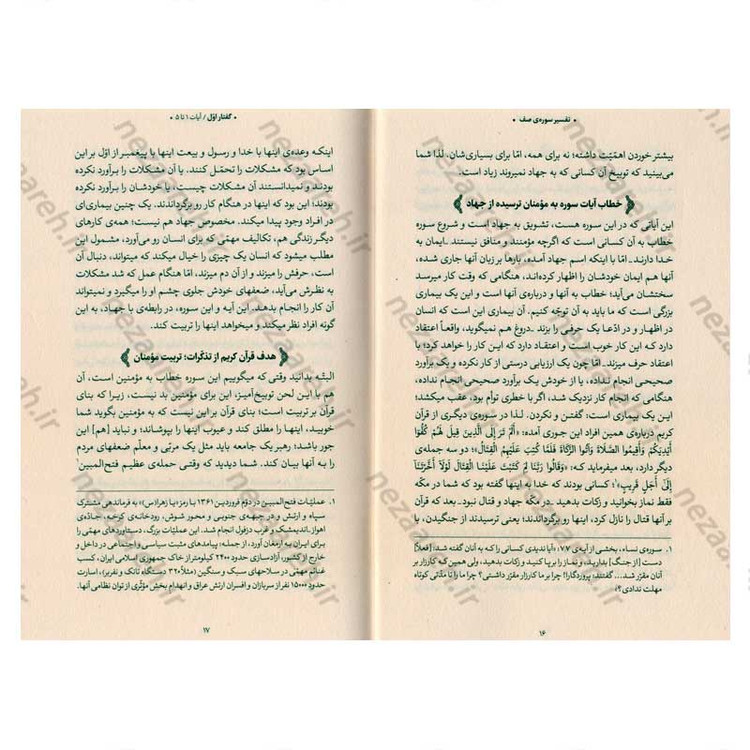 • تفسیر سوره‌ی صف •
بیشتر خوردن اهمّیّت داشته؛ نه برای همه، امّا برای بسیاری‌شان. لذا شما
می‌بینید که توبیخ آن کسانی که به جهاد نمیروند زیاد است.
خطاب آیات سوره به مؤمنان ترسیده از جهاد
این آیاتی که در این سوره هست، تشویق به جهاد است و شروع سوره
خطاب به آن کسانی است که اگرچه مؤمنند و منافق نیستند ـ ایمان به
خدا دارند ـ امّا با اینکه اسم جهاد آمده، بارها بر زبان آنها جاری شده،
آنها هم ایمان خودشان را اظهار کرده‌اند، هنگامی که وقت کار میرسد
سختشان می‌آید؛ خطاب به آنها و درباره‌ی آنها است و این یک بیماری
بزرگی است که ما باید به آن توجّه کنیم. آن بیماری این است که انسان
در اظهار و در ادّعا یک حرفی را بزند ـ دروغ هم نمیگوید، واقعاً اعتقاد
دارد کـه این کار خوب است و اعتقاد دارد که این کار را خواهد کرد؛ با
اعتقاد حرف میزند ـ امّا چون یک ارزیابی درستی از کار نکرده و یک برآورد
صحیحی انجام نداده، یا از خودش یک برآورد صحیحی انجام نداده،
هنگامی که انجام کار نزدیک شد، اگر با خطری توأم بود، عقب میکشد؛
این یک بیماری است؛ گفتن و نکردن. لذا در سوره‌ی دیگری از قرآن
کریم درباره‌ی همین افراد این جوری آمده: «أَلَمْ تَرَ إِلَى الَّذِينَ قِيلَ لَهُمْ كُفُّوا
أَيْدِيَكُمْ وَأَقِيمُوا الصَّلَاةَ وَآتُوا الزَّكَاةَ فَلَمَّا كُتِبَ عَلَيْهِمُ الْقِتَالُ»؛ دو سه جمله‌ی
دیگر دارد، بعد میفرماید که: «وَقَالُوا رَبَّنَا لِمَ كَتَبْتَ عَلَيْنَا الْقِتَالَ لَوْلَا أَخَّرْتَنَا
إِلَىٰ أَجَلٍ قَرِيبٍ»؛۱ کسانی بودند که خدا به اینها گفته بود که شما در مکّه
فقط نماز بخوانید و زکات بدهید ـ در مکّه جهاد و قتال نبود ـ بعد که قرآن
بر آنها قتال را نازل کرد، اینها رو برگرداندند؛ یعنی ترسیدند از جنگیدن، با
۱. سوره‌ی نساء، بخشی از آیه‌ی ۷۷؛ «آیا ندیدی کسانی را که به آنان گفته شد: [فعلاً]
دست [از جنگ] بدارید، و نماز را برپا کنید و زکات بدهید، ولی همین که کارزار بر
آنان مقرّر شد... گفتند: پروردگارا! چرا بر ما کارزار مقرّر داشتی؟ چرا ما را تا مدّتی کوتاه
مهلت ندادی؟»
۱۶
• گفتار اوّل / آیات ۱ تا ۵ •
اینکه وعده‌ی اینها با خدا و رسول و بیعت اینها با پیغمبر از اوّل بر این
اساس بود که مشکلات را تحمّل کنند. یا آن مشکلات را برآورد نکرده
بودند و نمیدانستند آن مشکلات چیست، یا خودشان را برآورد نکرده
بودند؛ این بود که اینها در هنگام کار رو برگرداندند. یک چنین بیماری‌ای
در افراد وجود پیدا میکند. مخصوص جهاد هم نیست؛ همه‌ی کارهای
دیگر زندگی هم، تکالیف مهمّی که برای انسان رو می‌آورد، مشمول این
مطلب میشود که انسان یک چیزی را خیال میکند که میتواند، دنبال آن
است، حرفش را میزند و از آن دم میزند، امّا هنگام عمل که شد مشکلات
به نظرش می‌آید، ضعفهای خودش جلوی چشم او را میگیرد و نمیتواند
آن کار را انجام بدهد. این آیه و این سوره، در رابطه‌ی با جهاد، به این
گونه افراد نظر میکند و میخواهد اینها را تربیت کند.
هدف قرآن کریم از تذکّرات؛ تربیت مؤمنان
البتّه بدانید وقتی که میگوییم این سوره خطاب به مؤمنین است، آن
هم با این لحن توبیخ‌آمیز، این برای مؤمنین بد نیست، زیرا که بنای
قرآن بر تربیت است؛ بنای قرآن بر این نیست که به مؤمنین بگوید شما
خوبید، اینها را مطلق کند و عیوب اینها را بپوشاند؛ و نباید [هم] این
جور باشد؛ رهبر یک جامعه باید مثل یک مربّی و معلّم ضعفهای مردم
را به آنها بیان کند. شما دیدید که وقتی حمله‌ی عظیم فتح‌المبین۱
۱. عملیّات فتح‌المبین در دوّم فروردین ۱۳۶۱ با رمز «یا زهرا(س)» به فرماندهی مشترک
سپاه و ارتش و در جبهه‌ی جنوبی و محور شوش، رودخانه‌ی کرخه، جادّه‌ی
اهواز اندیمشک و غرب دزفول انجام شد. این عملیّات بزرگ، دستاوردهای مهمّی را
برای ایران به ارمغان آورد، از جمله: پیامدهای مثبت سیاسی و اجتماعی در داخل و
خارج از کشور، آزادسازی حدود ۲۴۰۰ کیلومتر از خاک جمهوری اسلامی ایران، کسب
غنائم مهمّی در سلاحهای سبک و سنگین (مثلاً ۳۲۰ دستگاه تانک و نفربر)، اسارت
حدود ۱۵۰۰۰ نفر از سربازان و افسران ارتش عراق و انهدام بخش مؤثّری از توان نظامی آنها.
۱۷
nezaareh.ir